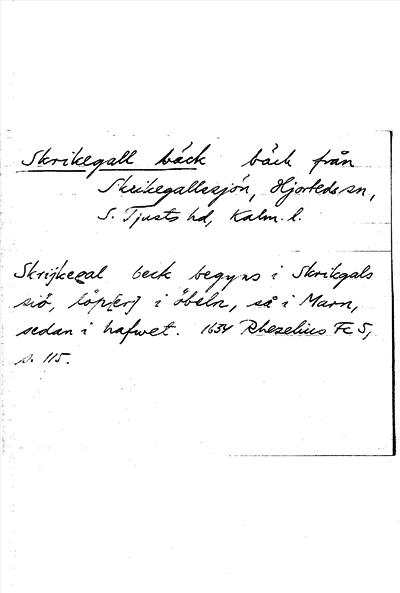 Skrikegall bäck bäck från
Skrikegallssjön, Hjorteds sn,
S. Tjusts hd, Kalm. l.
Skrijkegal beck begyns i Skrikgals
siö, löp[er] i öbeln, så i Marn,
sedan i hafwet. 1634 Rhezelius Fc 5,
s. 115.